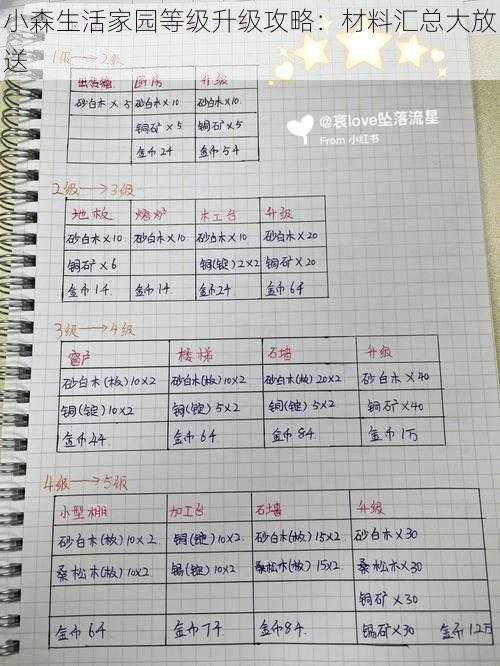 小森生活家园等级升级攻略：材料汇总大放送
1级→2级
出货箱 厨房 升级
砂白木×5 砂白木×10 砂白木×10
铜矿×5 铜矿×5
金币2千 金币5千
@哀love坠落流星
From 小红书
2级→3级
地板 烤炉 木工台 升级
砂白木×10 砂白木×10 砂白木×10 砂白木×20
铜矿×6 铜(锭)2×2 铜矿×20
金币1千 金币1千 金币2千 金币6千
3级→4级
窗户 楼梯 石墙 升级
砂白木(板)10×2 砂白木(板)10×2 砂白木(板)20×2 砂白木×40
铜(锭)10×2 铜(锭)5×2 铜(锭)5×2 铜矿×40
金币4千 金币6千 金币8千 金币1万
4级→5级
小型棚 加工台 石墙 升级
砂白木(板)10×2 铜(锭)10×2 砂白木(板)15×2 砂白木×30
桑松木(板)10×2 锡(锭)10×2 桑松木(板)15×2 桑松木×30
铜矿×30
金币6千 金币7千 金币8千 锡矿×30 金币1.2万